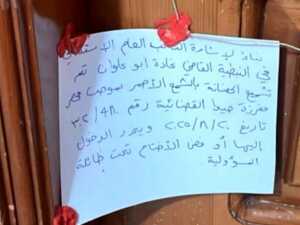 بناءً لإشارة النائب العام الاستئنافي
في النبطية القاضي غادة ابو علوان تم
ختم الحضانة بالشمع الأحمر بموجب محضر
مفرزة جبيل القضائية رقم ٣٠٢/٤٨٠
تاريخ ٢٠٢٥/٨/٢٠ ويحذر الدخول
اليها أو فض الأختام تحت طائلة
المسؤولية